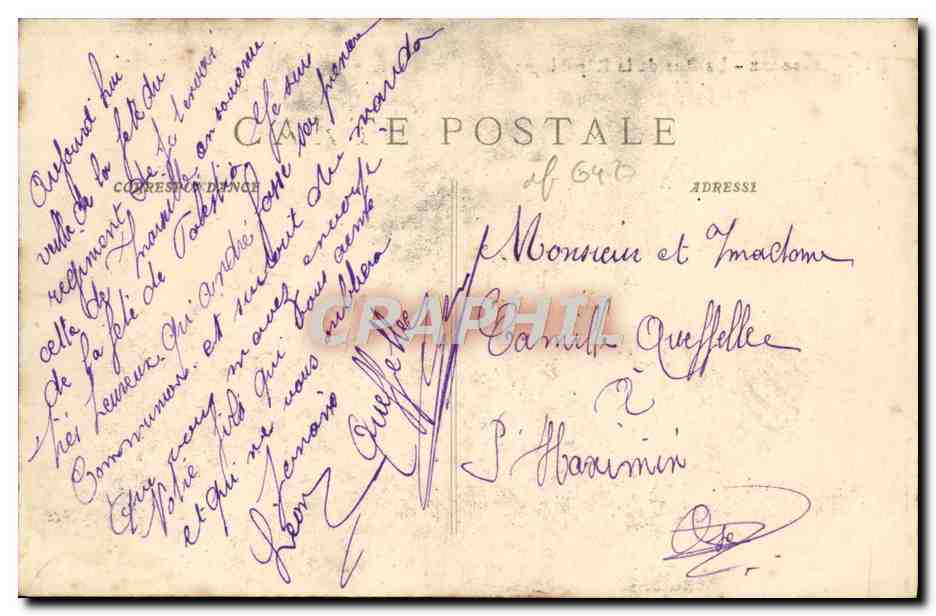 CARTE POSTALE
CORRESPONDANCE
ADRESSE
Aujourd'hui
veille de la fête du
régiment. Je t'envoi
cette de Marseille en souvenir
de la fête de Je suis
très heureux qu'andré fasse sa première
Communion. et surtout du mandat
Que vous m'avez encore
Votre fils qui vous aime
et qui ne vous oubliera
Jamais
Léon Queffelée
Monsieur et Madame
Camille Queffellée
à
St Maximin
Oise
CPAPHIL